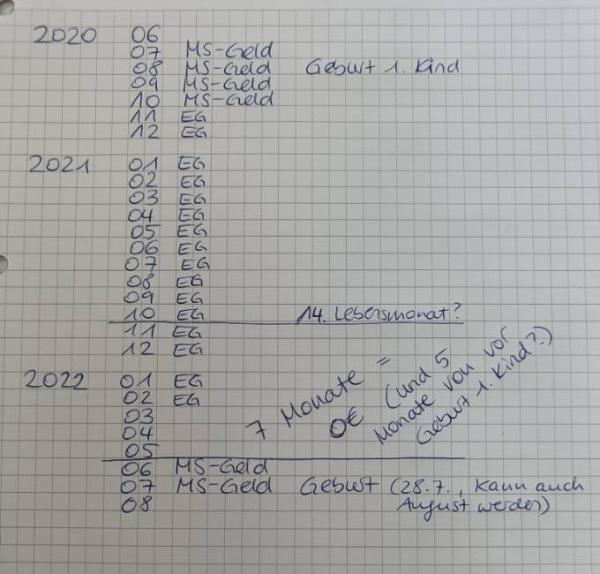 2020 06
07 MS-Geld
08 MS-Geld Geburt 1. Kind
09 MS-Geld
10 MS-Geld
11 EG
12 EG
2021 01 EG
02 EG
03 EG
04 EG
05 EG
06 EG
07 EG
08 EG
09 EG
10 EG 14. Lebensmonat?
11 EG
12 EG
2022 01 EG
02 EG
03
04
05
7 Monate =
0€ (und 5
Monate von vor
Geburt 1. Kind?)
06 MS-Geld
07 MS-Geld Geburt (28.7., kann auch
08 August werden)